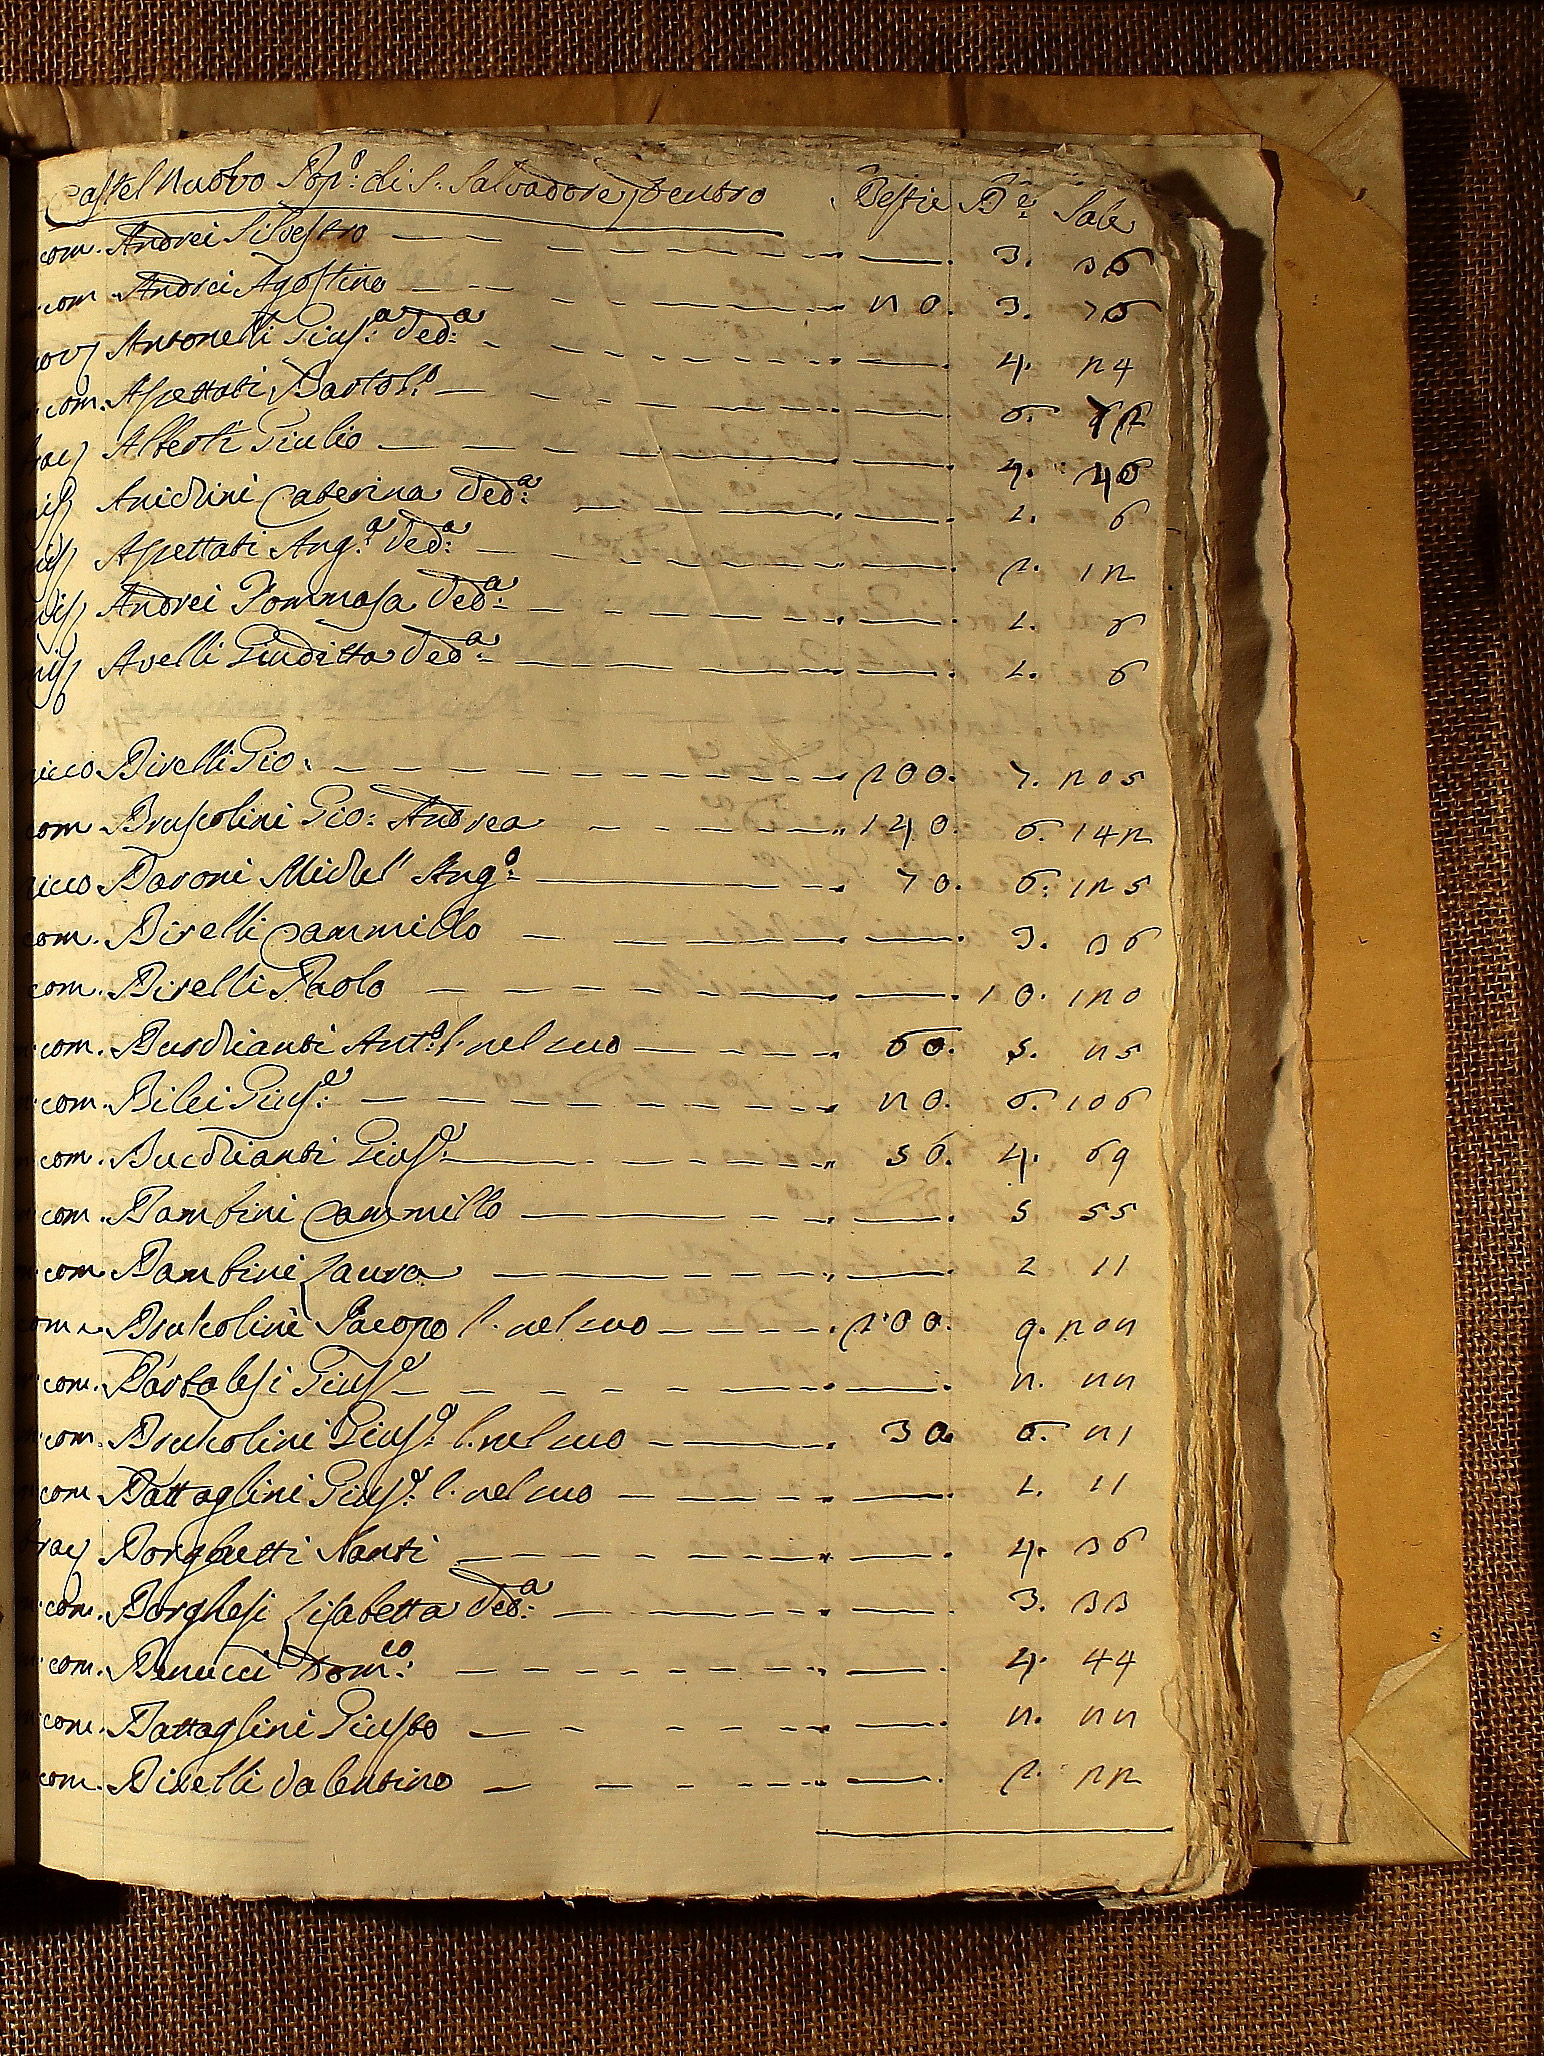 Castel Nuovo Pop.º di S. Salvadore, Dentro Bestie B.e Sale
com. Andrei Silvestro 3. 36
com. Andrei Agostino 20. 3. 76
Antonelli Gius.a Ved.a 4. 24
com. Aspettati Bartol.º 6. 72
Alberti Giulio 4. 46
Anichini Caterina Ved.a 1. 6
Aspettati Ang.a Ved.a 2. 12
Andrei Tommasa Ved.a 1. 6
Avelli Giuditta Ved.a 1. 6
icco Birelli Gio: 200. 7. 205
com. Bruscolini Gio: Andrea 140. 6. 142
icco Baroni Michel'Ang.º 70. 6. 125
com. Birelli Cammillo 3. 36
com. Birelli Paolo 10. 120
com. Buschianti Ant.º l. nel suo 60. 5. 25
com. Bilei Gius.e 20. 6. 106
com. Bucchianti Gius.e 56. 4. 69
com. Bambini Cammillo 5 55
com. Bambini Laura 2 11
com. Bruscolini Jacopo l. nel suo 200. 9. 202
com. Bartalesi Gius.e 2. 22
com. Bruscolini Gius.e l. nel suo 30. 6. 21
com. Battaglini Gius.e l. nel suo 1. 11
Borghetti Santi 4. 36
com. Borghesi Lisabetta Ved.a 3. 33
com. Benucci Dom.co 4. 44
com. Battaglini Giusto 2. 22
com. Birelli Valentino 2. 22